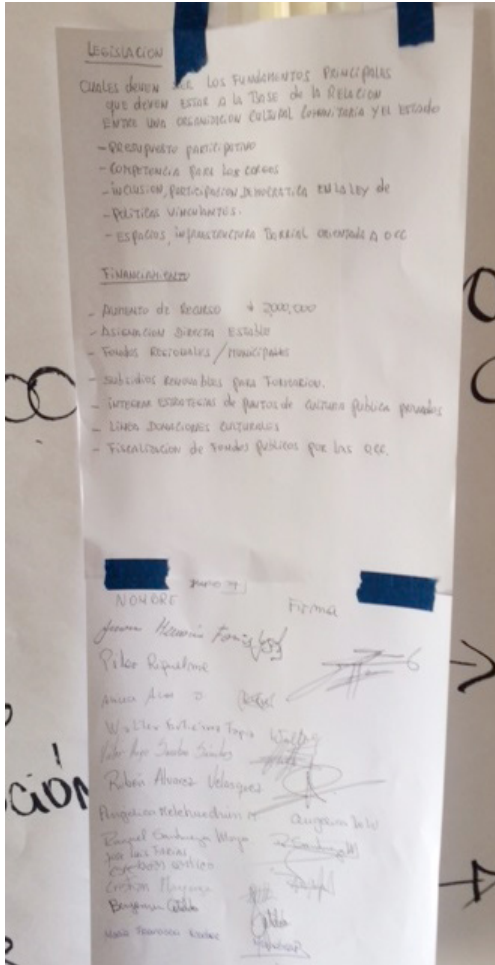 LEGISLACION
CUALES DEVEN SER LOS FUNDAMENTOS PRINCIPALES
QUE DEVEN ESTAR A LA BASE de la RELACION
ENTRE UNA ORGANIZACION CULTURAL COMUNITARIA Y EL ESTADO
- PRESUPUESTO PARTICIPATIVO
- COMPETENCIA PARA LOS CARGOS
- INCLUSION, PARTICIPACION DEMOCRATICA EN LA LEY de
- POLITICAS VINCULANTES.
- ESPACIOS, INFRAESTRUCTURA BARRIAL ORIENTADA A OCC
FINANCIAMIENTO
- AUMENTO de RECURSO $ 2,000,000
- ASIGNACION DIRECTA ESTADO
- FONDOS REGIONALES / MUNICIPALES
- SUBSIDIOS RENOVABLES PARA
- INTEGRAR ESTRATEGIAS de PUNTOS de CULTURA PUBLICA PRIVADOS
- LINEA DONACIONES CULTURALES
- FISCALIZACION de FONDOS PUBLICOS POR LAS OCC.
NOMBRE Firma
Pilar Riquelme
Walter
Rubén Alvarez Velasquez
Angelica
Raquel
José Luis Farias
Cristian
Benjamin
Maria Francisca
ción